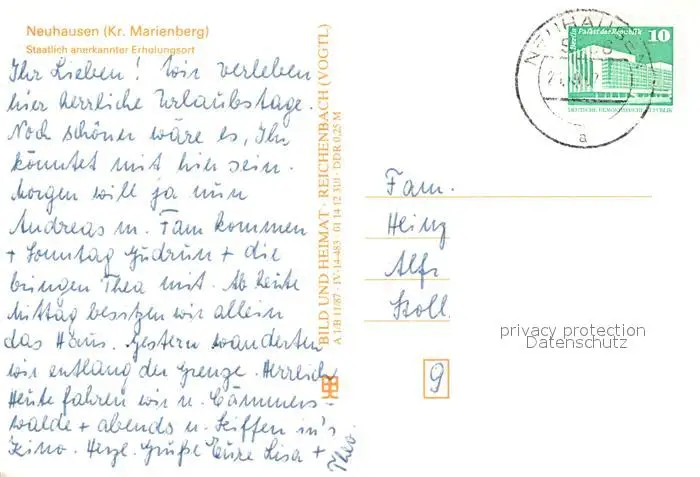 Neuhausen (Kr. Marienberg)
Staatlich anerkannter Erholungsort
Ihr Lieben! Wir verleben
hier herrliche Urlaubstage.
Noch schöner wäre es, Ihr
könntet mit hier sein.
Morgen will ja nun
Andreas m. Fam kommen
+ Sonntag Gudrun + die
bringen Thea mit. Ab heute
Mittag besitzen wir allein
das Haus. Gestern wanderten
wir entlang der Grenze. Herrlich
Heute fahren wir n. Cämmers-
walde + abends n. Seiffen in's
Kino. Herzl. Grüße Eure Lisa +
Theo.
BILD UND HEIMAT · REICHENBACH (VOGTL)
A 1/B 11/87 · IV-14-483 · 01 14 12 310 · DDR 0,25 M
NEUHAUSEN
a
Berlin Palast der Republik
10
DEUTSCHE DEMOKRATISCHE REPUBLIK
Fam.
Heinz
Alfr
Stoll.
9
privacy protection
Datenschutz